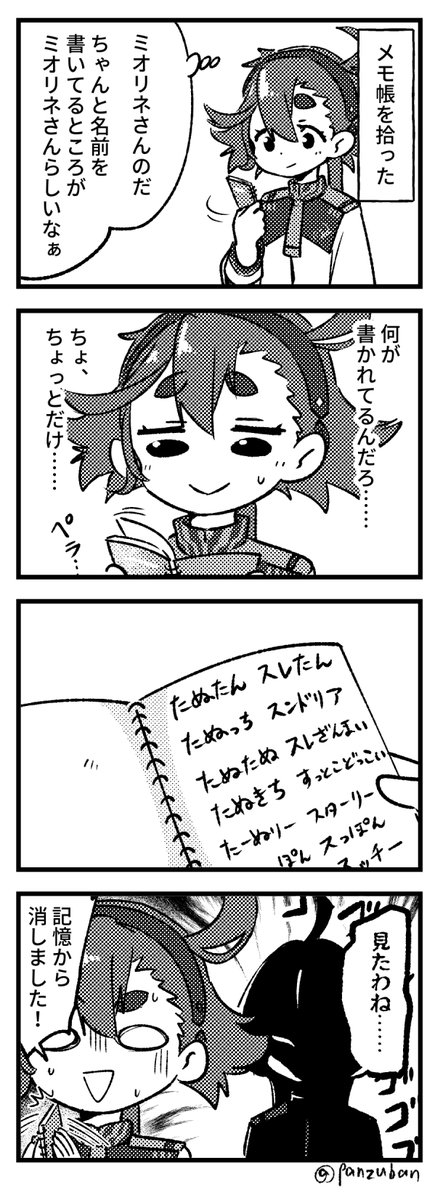 メモ帳を拾った
ミオリネさんのだ
ちゃんと名前を
書いてるところが
ミオリネさんらしいなぁ
何が
書かれてるんだろ……
ちょ、
ちょっとだけ……
ペラ…
たぬたん スレたん
たぬっち スンドリア
たぬたぬ スレざんまい
たぬきち すっとこどっこい
たーぬりー スターリー
ぽん スっぽん
スッチー
見たわね……
ゴゴゴゴ
記憶から
消しました！
@panzuban